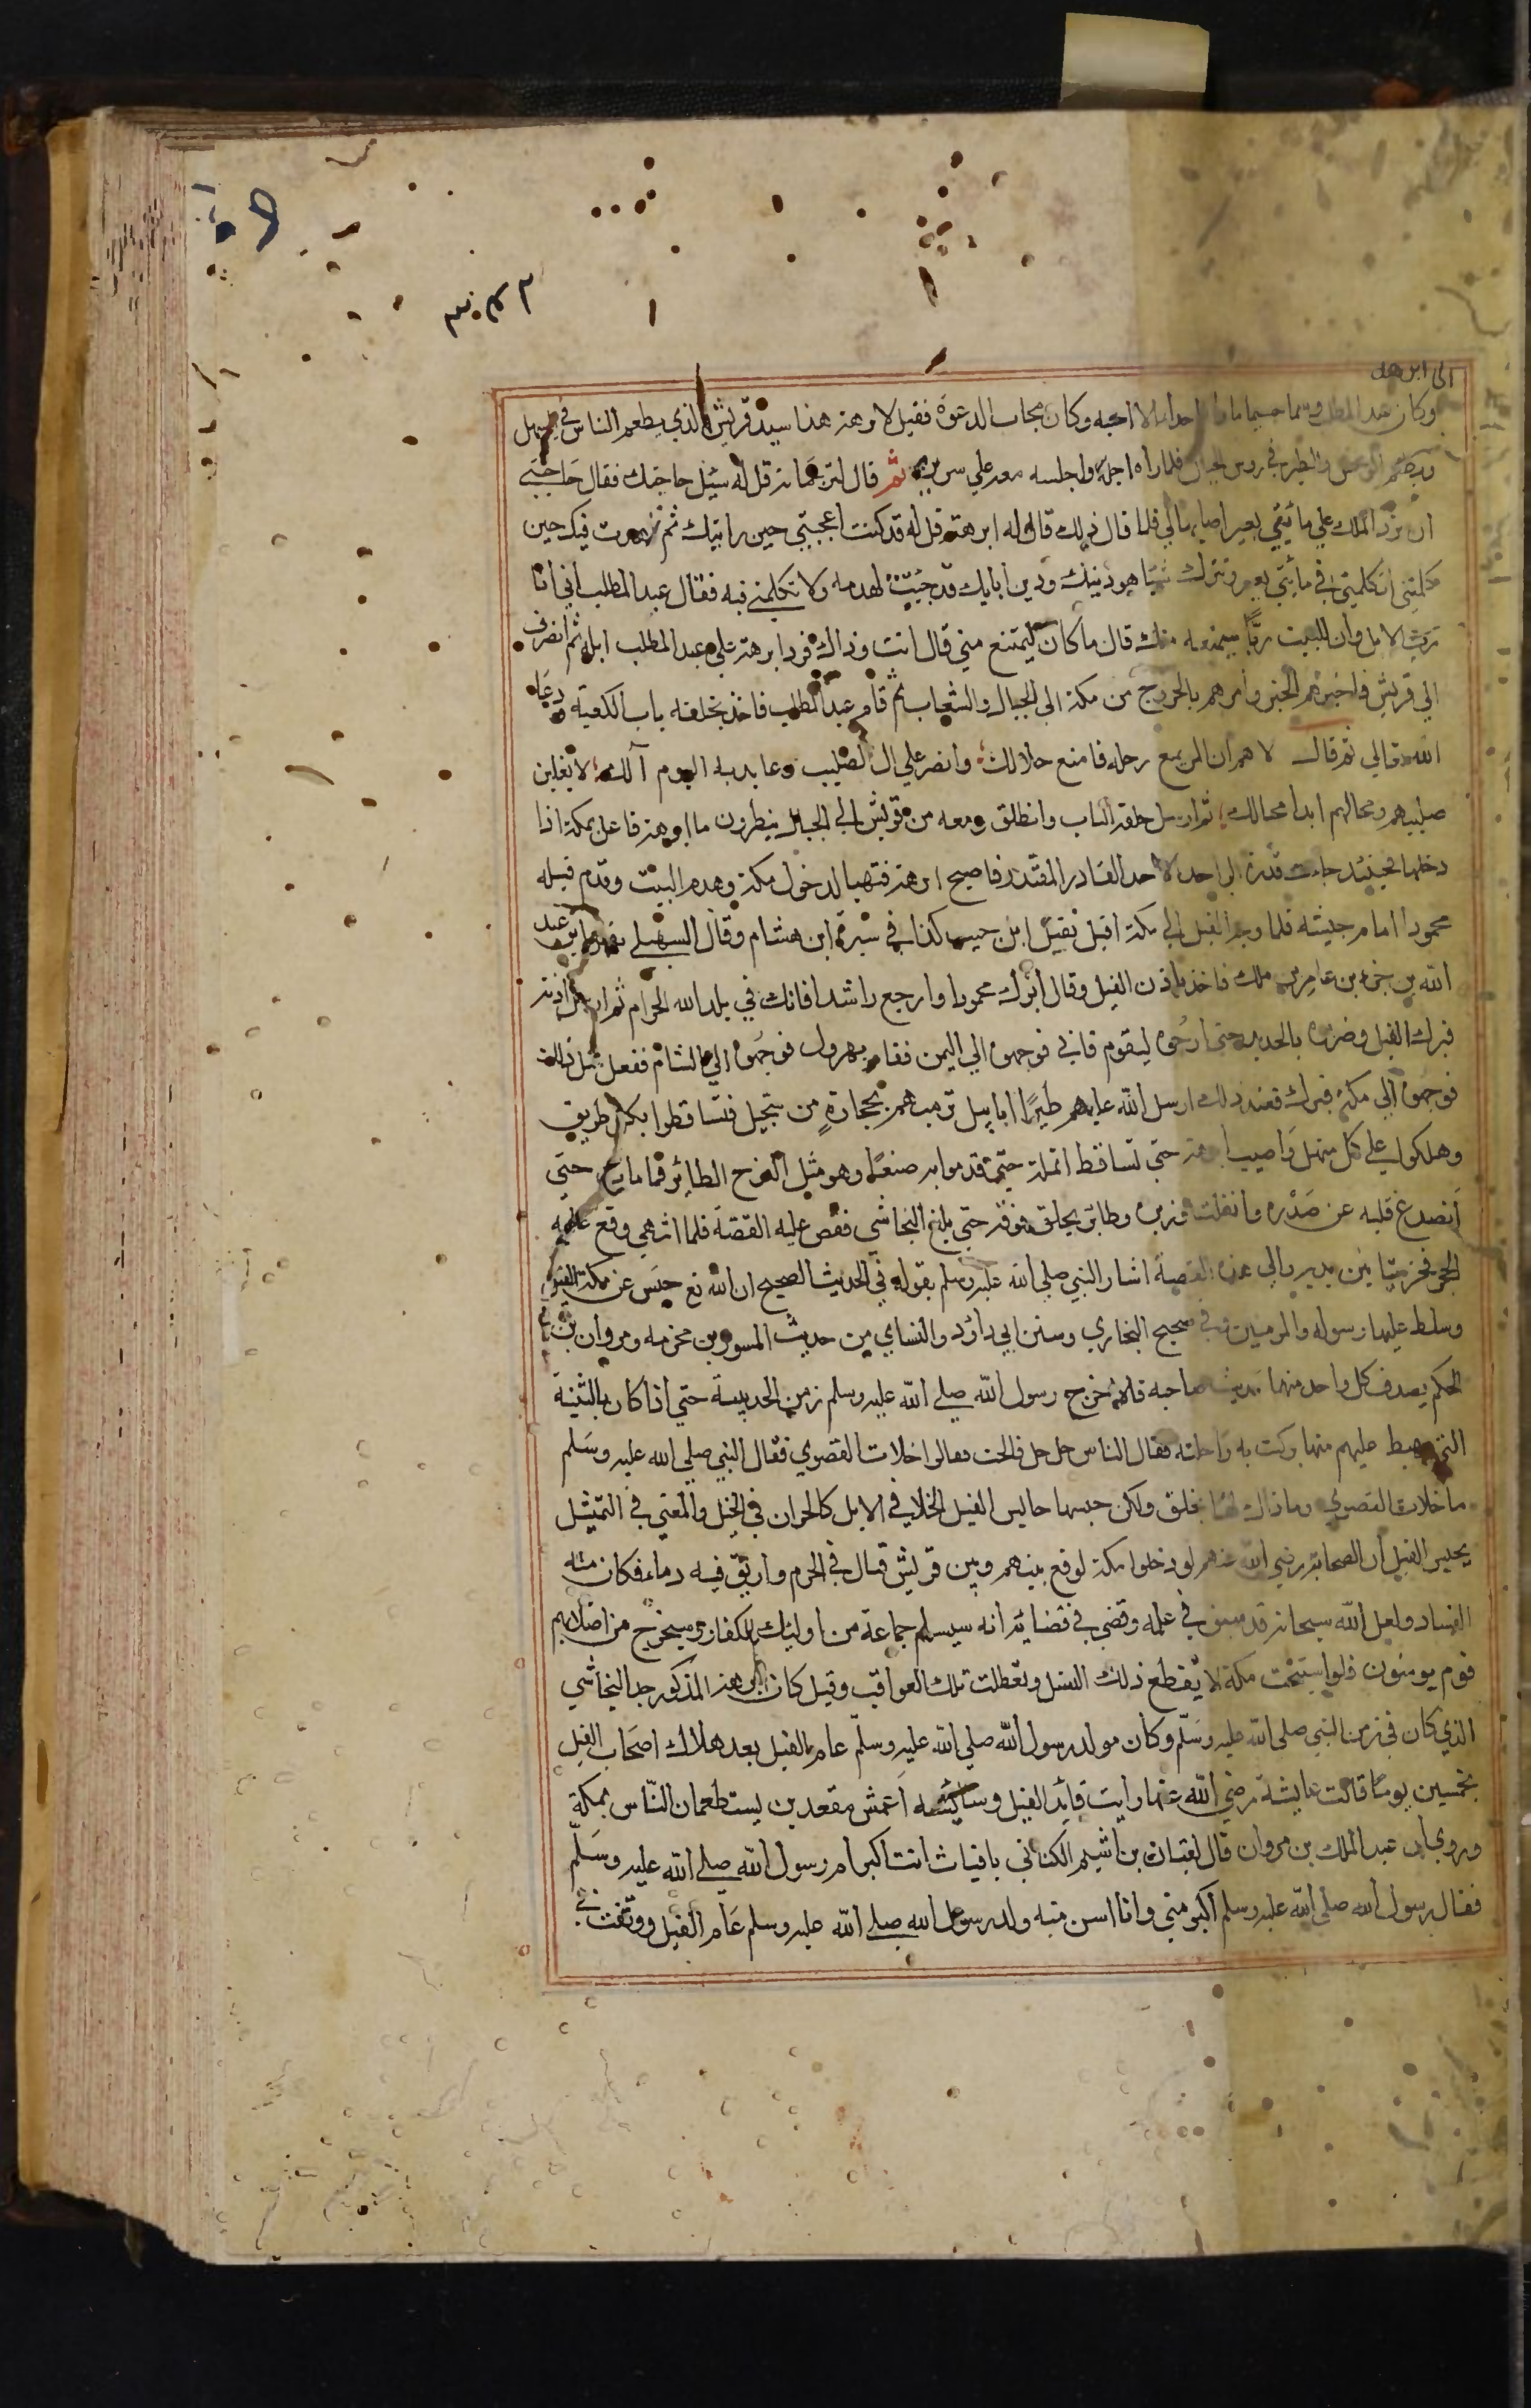 ٣٠٤٢
الى ابرهه
وكان عبد المطلب وسيما جسيما ما راه احدا الا احبه وكان مجاب الدعوة فقيل لابرهة هذا سيد قريش الذي يطعم الناس في السهل
ويطعم الوحش والطير في روس الجبال فلما راه اجله واجلسه معه علي سريره ثم قال لترجمانه قل له سئل حاجتك فقال حاجتي
ان يرد الملك علي مائيتي بعير اصابها لي فلما قال ذلك قال له ابرهة قل له قد كنت اعجبتني حين رايتك ثم زهدت فيك حين
كلمتني اتكلمني في مائيتي بعير وتترك شيا هو دينك ودين ابايك قد جئت لهدمه ولا تكلمني فيه فقال عبد المطلب اني انا
رب الابل وان للبيت ربا سيمنعه منك قال ما كان ليمتنع مني قال انت وذاك فرد ابرهة علي عبد المطلب ابله ثم انصرف
الي قريش واخبرهم الخبر وامرهم بالخروج من مكة الي الجبال والشعاب ثم قام عبد المطلب فاخذ بحلقه باب الكعبة ودعا
الله تعالي ثم قال لاهم ان المر يمنع رحله فامنع حلالك وانصر علي ال الصليب وعابديه اليوم آلك لا يغلبن
صليبهم ومحالهم ابدا محالك ثم ارسل حلقة الباب وانطلق ومعه من قريش الي الجبال ينظرون ما ابرهة فاعل بمكة اذا
دخلها فحينئذ جات قدرة الواحد الاحد القادر المقتدر فاصبح ابرهة فتهيا لدخول مكة وهدم البيت وقدم فيله
محمودا امام جيشه فلما وجه الفيل الي مكة اقبل نفيل ابن حبيب كذا في سيرة ابن هشام وقال السهيلي نفيل ابن عبد
الله بن جزء بن عامر بن ملك فاخذ باذن الفيل وقال ابرك محمودا وارجع راشدا فانك في بلد الله الحرام ثم ارسل اذنه
فبرك الفيل وضربوه بالحديد حتى ليقوم فابي فوجهوه الي اليمن فقام يهرول فوجهوه الي الشام ففعل مثل ذلك
فوجهوه الي مكة فبرك فعند ذلك ارسل الله عليهم طيرا ابابيل ترميهم بحجارة من سجيل فتساقطوا بكل طريق
وهلكوا علي كل منهل واصيب ابرهة حتي تساقط انملة حتي قدموا به صنعا وهو مثل الفرخ الطائر فما مات حتي
انصدع قلبه عن صدره وانفلت وزيره وطائر يحلق فوقه حتي بلغ النجاشي فقص عليه القصة فلما انهي وقع عليه
الحجر فخر ميتا بين يديه والي هذه القصة اشار النبي صلي الله عليه وسلم بقوله في الحديث الصحيح ان الله تع حبس عن مكة الفيل
وسلط عليها رسوله والمومنين وفي صحيح البخاري وسنن ابي داود والنساي من حديث المسور بن مخرمه ومروان بن
الحكم يصدق كل واحد منهما حديث صاحبه قالا خرج رسول الله صلي الله عليه وسلم زمن الحديبية حتي اذا كان بالثنية
التي يهبط عليهم منها بركت به راحلته فقال الناس حل حل فالحت فقالوا خلات القصوي فقال النبي صلي الله عليه وسلم
ما خلات القصوي وما ذاك لها بخلق ولكن حبسها حابس الفيل الخلا في الابل كالحران في الخيل والمعني في التمثيل
بحبس الفيل ان الصحابة رضي الله عنهم لو دخلوا مكة لوقع بينهم وبين قريش قتال في الحرم واريق فيه دماء فكان منه
الفساد ولعل الله سبحانه قد سبق في علمه وقضي في قضائه انه سيسلم جماعة من اولئك الكفار وسيخرج من اصلابهم
قوم يومنون فلو استبيحت مكة لا نقطع ذلك النسل وتعطلت تلك العواقب وقيل كان ابرهة المذكور جد النجاشي
الذي كان في زمن النبي صلي الله عليه وسلم وكان مولد رسول الله صلي الله عليه وسلم عام الفيل بعد هلاك اصحاب الفيل
بخمسين يوما قالت عايشة رضي الله عنها رايت قايد الفيل وسائسه اعمش مقعدين يستطعمان الناس بمكة
وروي ان عبد الملك بن مروان قال لقباث بن اشيم الكناني يا قباث انت اكبر ام رسول الله صلي الله عليه وسلم
فقال رسول الله صلي الله عليه وسلم اكبر مني وانا اسن منه ولد رسول الله صلي الله عليه وسلم عام الفيل ووقفت في